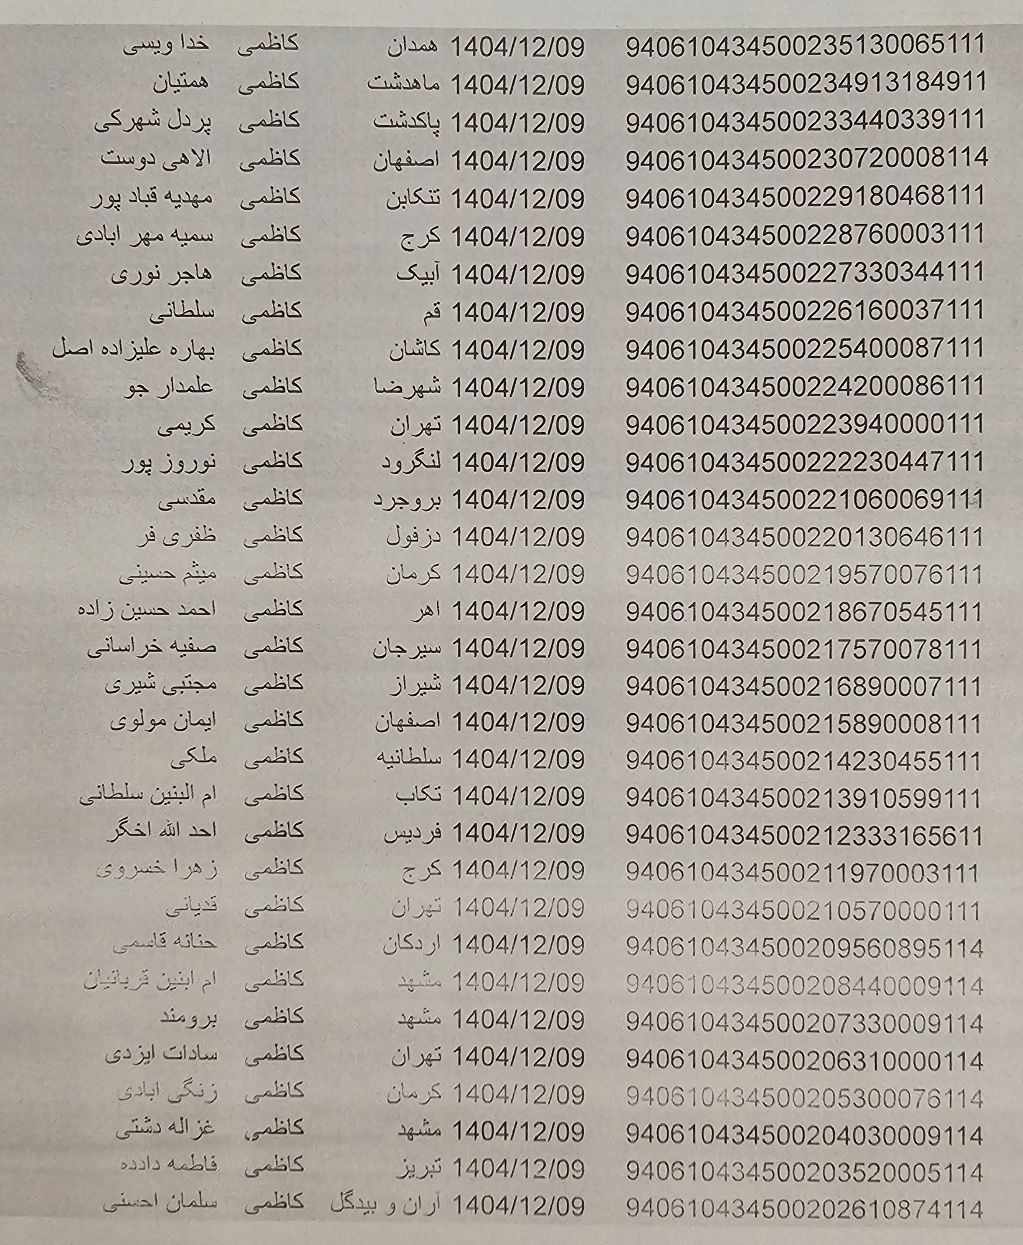 940610434500235130065111 1404/12/09 همدان کاظمی خدا ویسی
940610434500234913184911 1404/12/09 ماهدشت کاظمی همتیان
940610434500233440339111 1404/12/09 پاکدشت کاظمی پردل شهرکی
940610434500230720008114 1404/12/09 اصفهان کاظمی الاهی دوست
940610434500229180468111 1404/12/09 تنکابن کاظمی مهدیه قباد پور
940610434500228760003111 1404/12/09 کرج کاظمی سمیه مهر ابادی
940610434500227330344111 1404/12/09 آبیک کاظمی هاجر نوری
940610434500226160037111 1404/12/09 قم کاظمی سلطانی
940610434500225400087111 1404/12/09 کاشان کاظمی بهاره علیزاده اصل
940610434500224200086111 1404/12/09 شهرضا کاظمی علمدار جو
940610434500223940000111 1404/12/09 تهران کاظمی کریمی
940610434500222230447111 1404/12/09 لنگرود کاظمی نوروز پور
940610434500221060069111 1404/12/09 بروجرد کاظمی مقدسی
940610434500220130646111 1404/12/09 دزفول کاظمی ظفری فر
940610434500219570076111 1404/12/09 کرمان کاظمی میثم حسینی
940610434500218670545111 1404/12/09 اهر کاظمی احمد حسین زاده
940610434500217570078111 1404/12/09 سیرجان کاظمی صفیه خراسانی
940610434500216890007111 1404/12/09 شیراز کاظمی مجتبی شیری
940610434500215890008111 1404/12/09 اصفهان کاظمی ایمان مولوی
940610434500214230455111 1404/12/09 سلطانیه کاظمی ملکی
940610434500213910599111 1404/12/09 تکاب کاظمی ام البنین سلطانی
940610434500212333165611 1404/12/09 فردیس کاظمی احد الله اخگر
940610434500211970003111 1404/12/09 کرج کاظمی زهرا خسروی
940610434500210570000111 1404/12/09 تهران کاظمی قدیانی
940610434500209560895114 1404/12/09 اردکان کاظمی حنانه قاسمی
940610434500208440009114 1404/12/09 مشهد کاظمی ام ابنین قربانیان
940610434500207330009114 1404/12/09 مشهد کاظمی برومند
940610434500206310000114 1404/12/09 تهران کاظمی سادات ایزدی
940610434500205300076114 1404/12/09 کرمان کاظمی زنگی ابادی
940610434500204030009114 1404/12/09 مشهد کاظمی غزاله دشتی
940610434500203520005114 1404/12/09 تبریز کاظمی فاطمه دادده
940610434500202610874114 1404/12/09 آران و بیدگل کاظمی سلمان احسنی